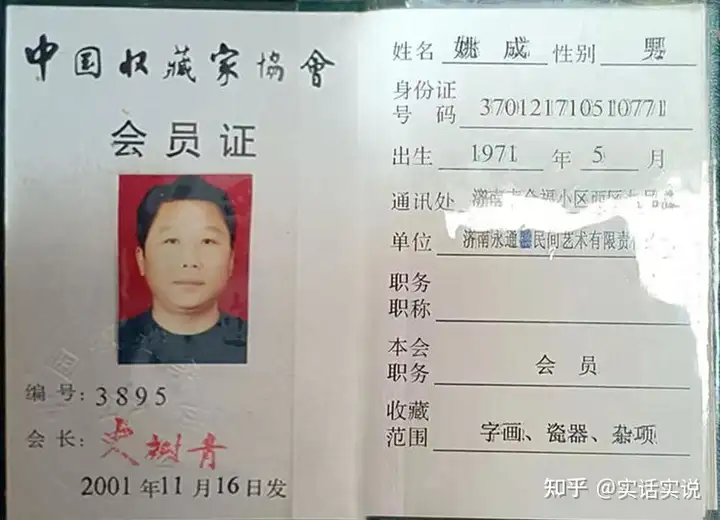 中国收藏家協會
会员证
编号：3895
会长：史树青
2001年11月16日发
姓名 姚成 性别 男
身份证
号码 370121710510771
出生 1971 年 5 月
通讯处
单位 济南永通 民间艺术有限责
职务
职称
本会
职务 会员
收藏
范围 字画、瓷器、杂项
知乎 @实话实说